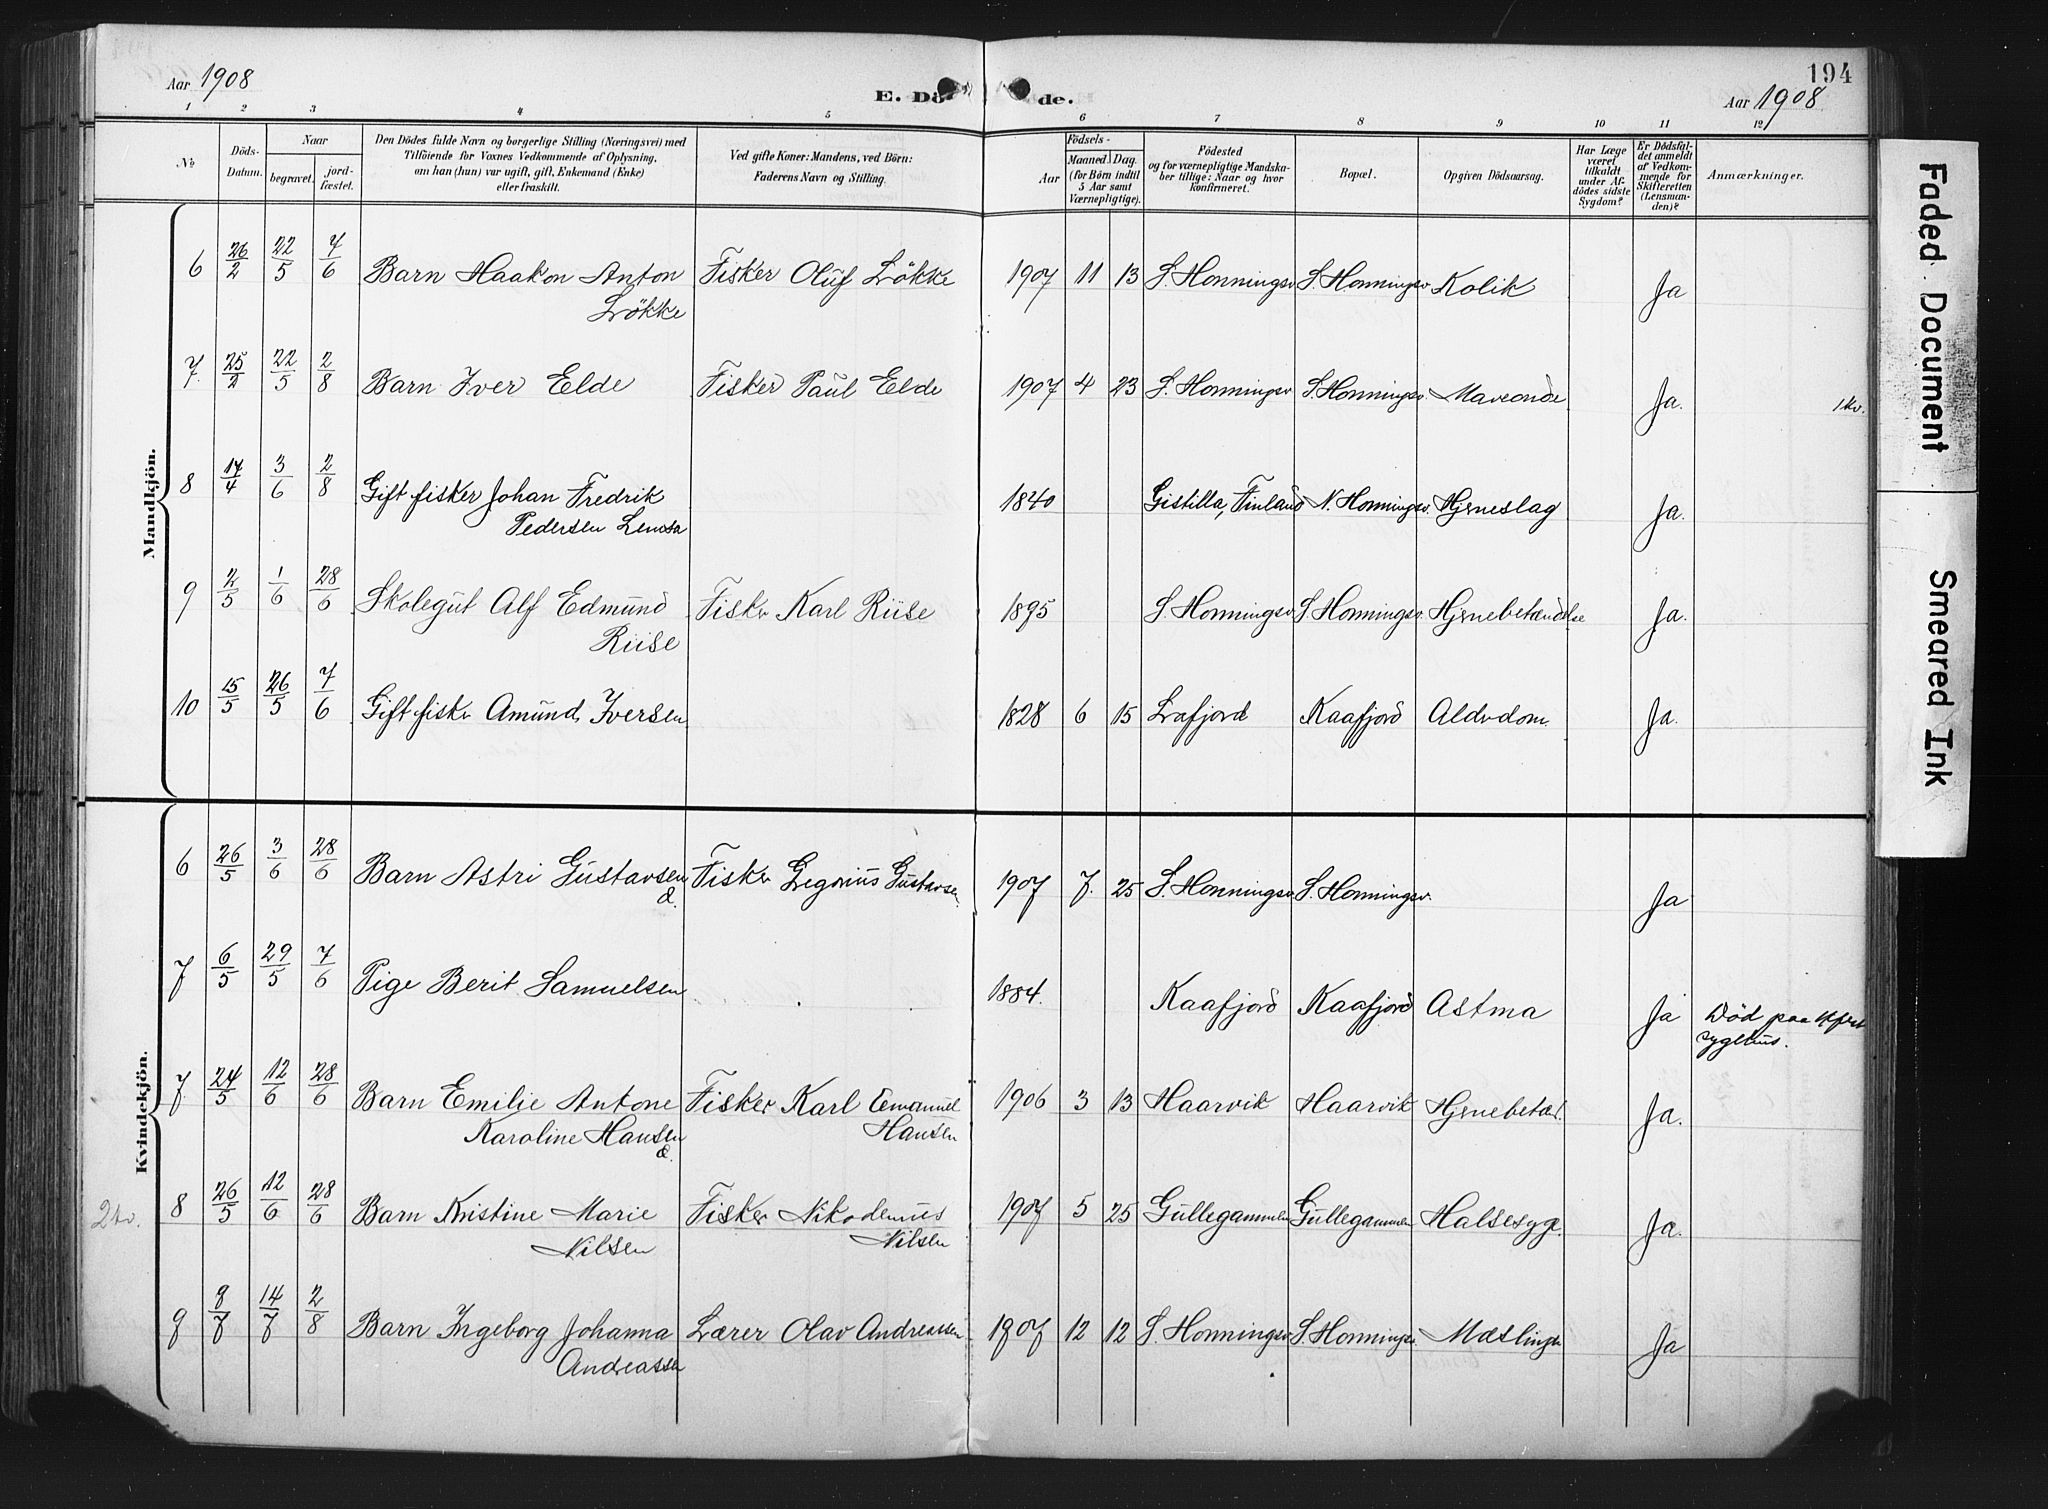 Aar 1908
E. Dö de.
194
Aar 1908
1 2 3 4 5 6 7 8 9 10 11 12
No
Döds-
Datum.
Naar
begravet.
jord-
fæstet.
Den Dödes fulde Navn og borgerlige Stilling (Næringsvei) med
Tilföiende for Voxnes Vedkommende af Oplysning,
om han (hun) var ugift, gift, Enkemand (Enke)
eller fraskilt.
Ved gifte Koner: Mandens, ved Börn:
Faderens Navn og Stilling.
Födsels-
Aar
Maaned. Dag.
(for Börn indtil
5 Aar samt
Værnepligtige).
Födested
og for værnepligtige Mandska-
ber tillige: Naar og hvor
konfirmeret.
Bopæl.
Opgiven Dödsaarsag.
Har Læge
været
tilkaldt
under Af-
dödes sidste
Sygdom?
Er Dödsfal-
det anmeldt
af Vedkom-
mende for
Skifteretten
(Lensman-
den)?
Anmærkninger.
Mandkjön.
6 26/2 22/5 7/6 Barn Haakon Anton Fisker Oluf Lökke 1907 11 13 S. Honningsv. S. Honningsv. Kolik Ja
Lökke
7. 25/2 22/5 2/8 Barn Iver Elde Fisker Paul Elde 1907 4 23 S. Honningsv S. Honningsv. Ja. 1 kv.
8 17/4 3/6 2/8 Gift fisker Johan Fredrik 1840 Finland N. Honningsv. Hjerneslag Ja.
Pedersen
9 2/5 1/6 28/6 Skolegut Alf Edmund Fisker Karl Riise 1895 S. Honningsv. S. Honningsv. Hjernebetændelse Ja.
Riise
10 15/5 26/5 7/6 Gift fisker Amund Iversen 1828 6 15 Lafjord Kaafjord Alderdom. Ja.
Kvindekjön.
6 26/5 3/6 28/6 Barn Astri Gustavsen Fisker Gustavsen 1907 7. 25 S. Honningsv. S. Honningsv. Ja
d.
7 6/5 29/5 7/6 Pige Berit Samuelsen 1884. Kaafjord Kaafjord Astma Ja Död paa
sygehus.
7. 24/5 12/6 28/6 Barn Emilie Antone Fisker Karl Emanuel 1906 3 13 Haarvik Haarvik Hjernebetæd. Ja.
Karoline Hansen Hansen
d.
2 kv. 8 26/5 12/6 28/6 Barn Kristine Marie Fisker Nikodemus 1907 5 25 Gullegammen Gullegammen Halsesyge Ja.
Nilsen Nilsen
9 8/7 14/7 2/8 Barn Ingeborg Johanna Lærer Olav Andreassen 1907 12 12 S. Honningsv. S. Honningsv. Mæslinger Ja
Andreassen
Faded Document
Smeared Ink